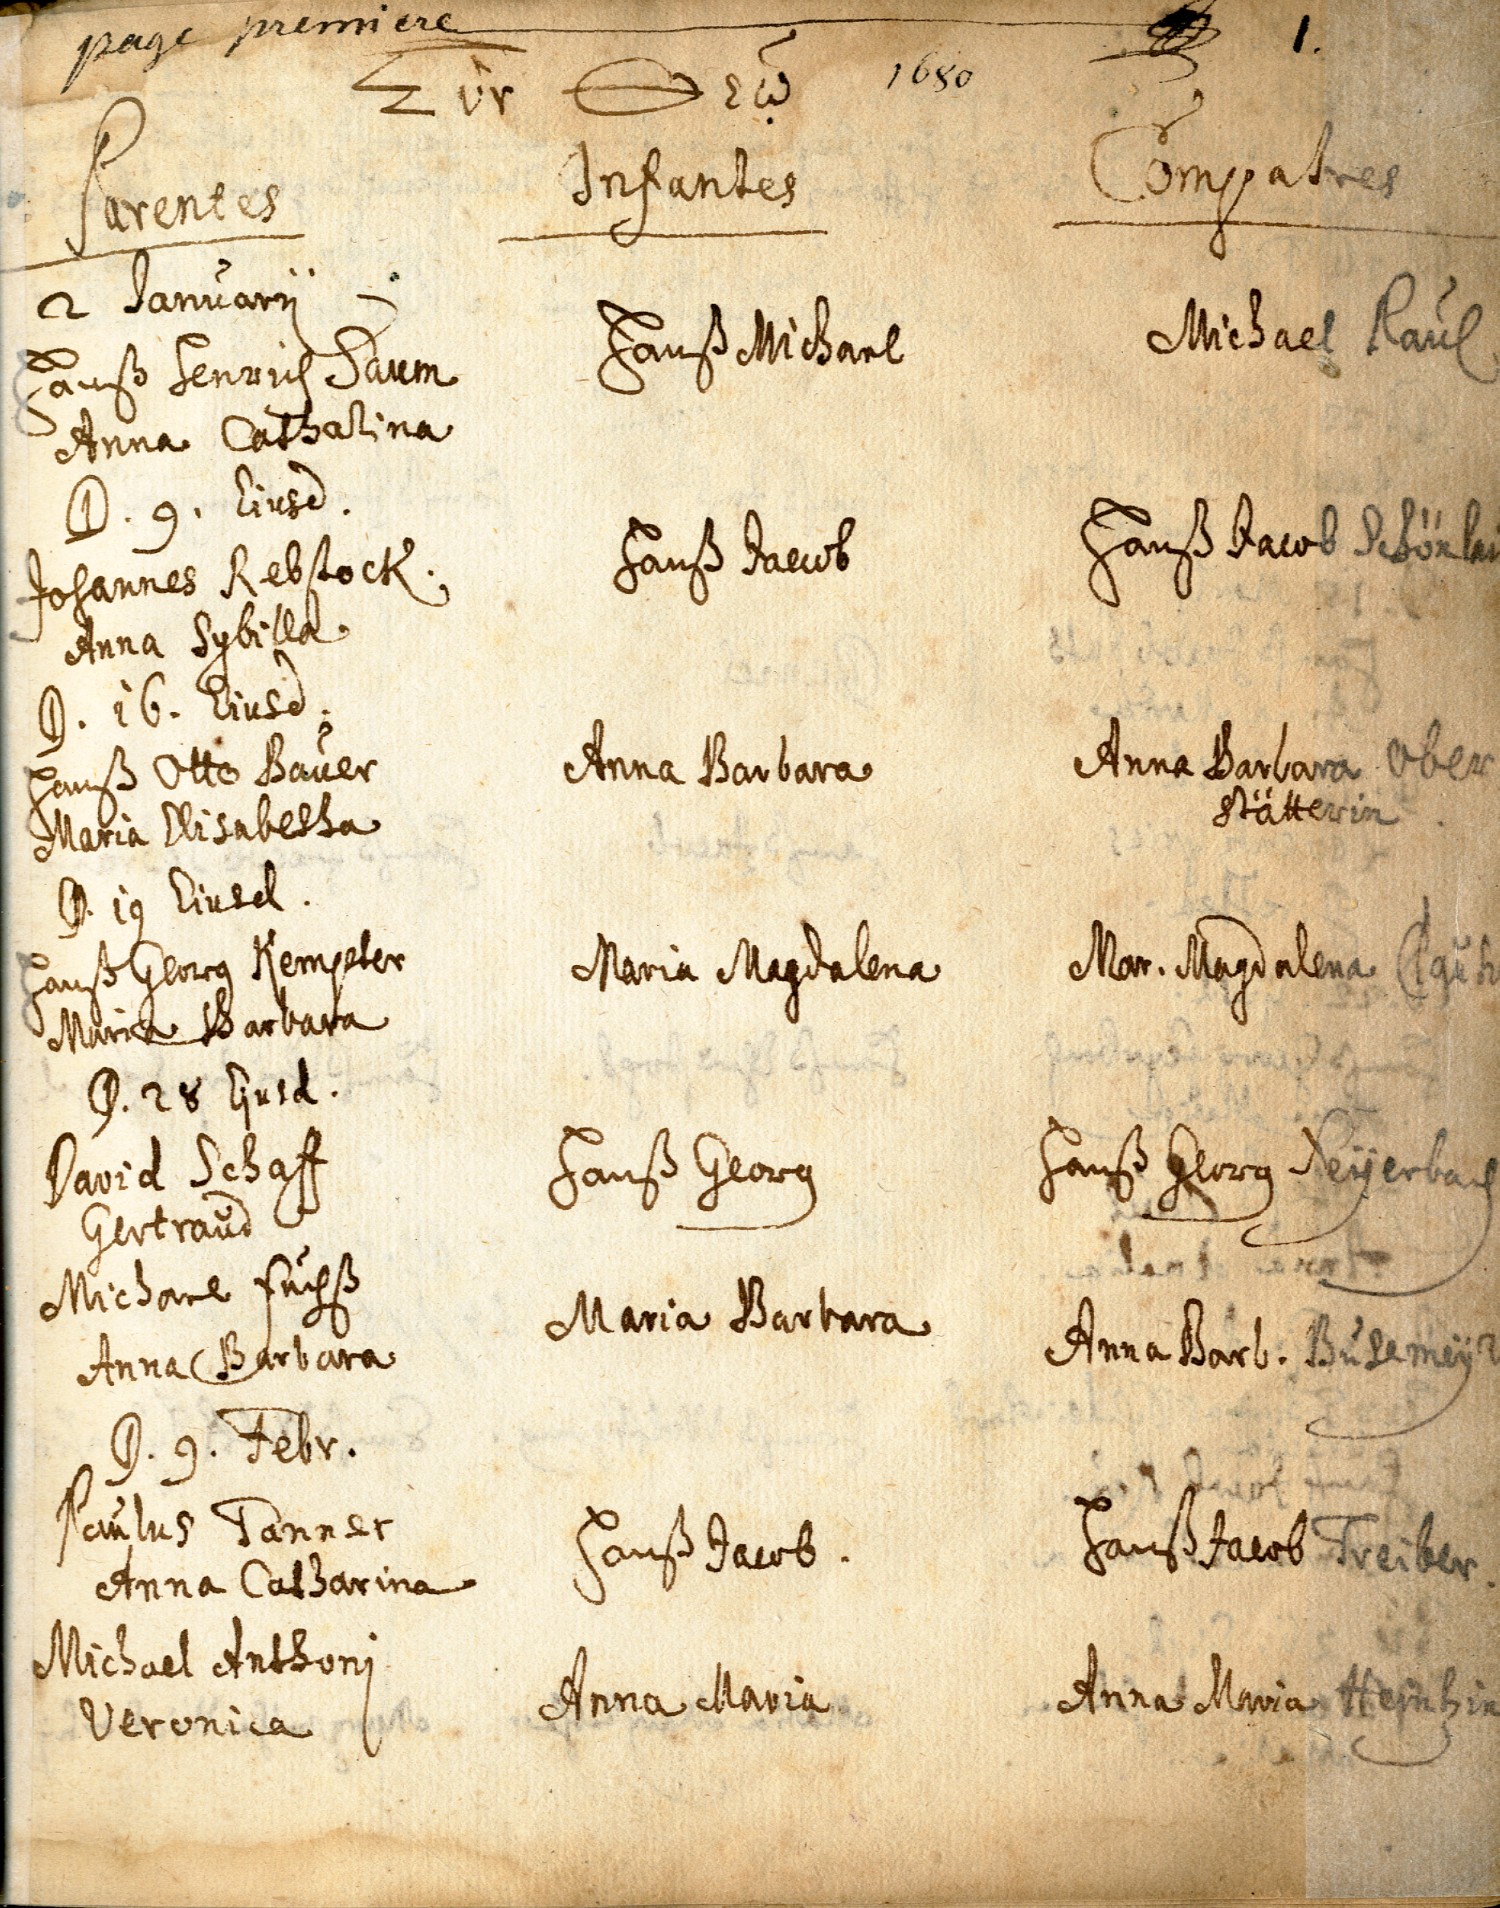 page premiere 1.
Σὺν Θεῷ 1680
Parentes Infantes Compatres
2 Januarij
Hanß Henrich Saum Hanß Michael Michael Raúch
Anna Cathalina
D. 9. Eiusd.
Johannes Rebstock. Hanß Jacob Hanß Jacob Schönlau
Anna Sybilla
D. 16. Eiusd.
Hanß Otto Baúer Anna Barbara Anna Barbara Ober
Maria Elisabetha stätterin
D. 19 Eiusd.
Hanß Georg Kempter Maria Magdalena Mar. Magdalena
Maria Barbara
D. 28 Ejusd.
David Schaff Hanß Georg Hanß Georg Neÿerbach
Gertraúd
Michael Fúchß Maria Barbara Anna Barb. Búsemeÿr
Anna Barbara
D. 9. Febr.
Paúlus Tanner Hanß Jacob. Hanß Jacob Treiber.
Anna Catharina
Michael Anthonj
Veronica Anna Maria Anna Maria Hejnhin